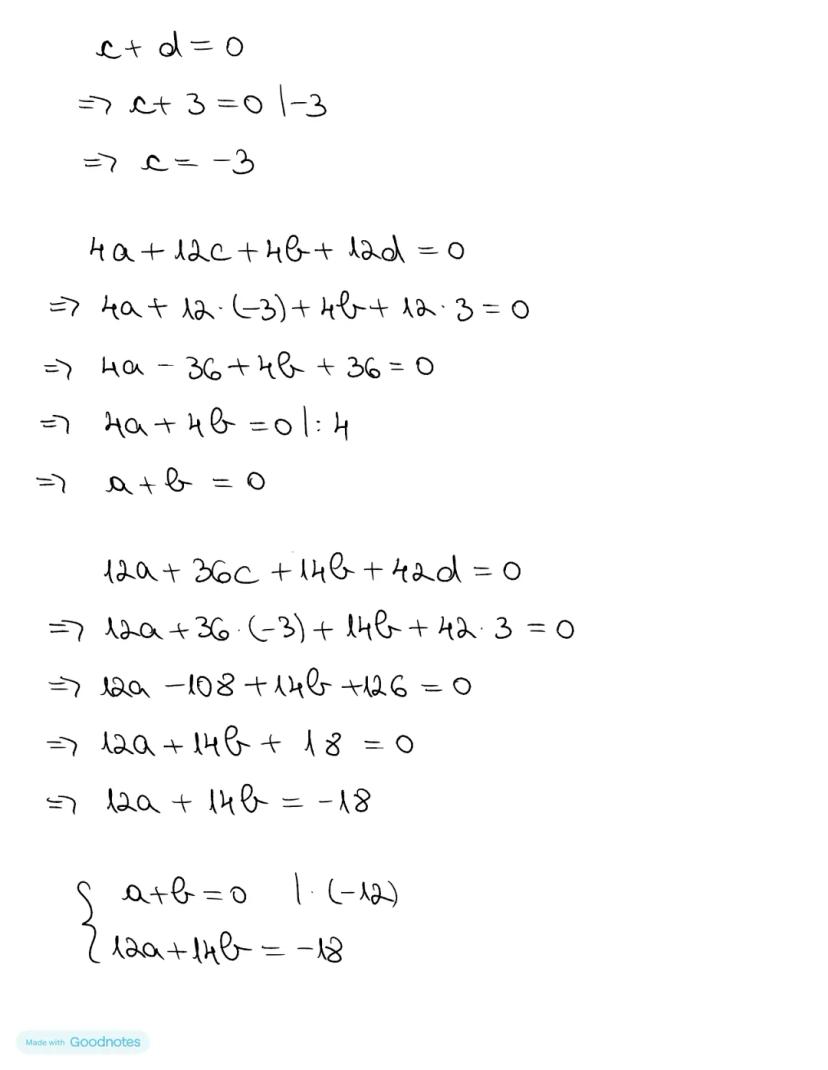 c + d = 0
=> c + 3 = 0 |-3
=> c = -3
4a + 12c + 4b + 12d = 0
=> 4a + 12·(-3) + 4b + 12·3 = 0
=> 4a - 36 + 4b + 36 = 0
=> 4a + 4b = 0 |: 4
=> a + b = 0
12a + 36c + 14b + 42d = 0
=> 12a + 36·(-3) + 14b + 42·3 = 0
=> 12a - 108 + 14b + 126 = 0
=> 12a + 14b + 18 = 0
=> 12a + 14b = -18
{ a + b = 0 |·(-12)
12a + 14b = -18
Made with Goodnotes